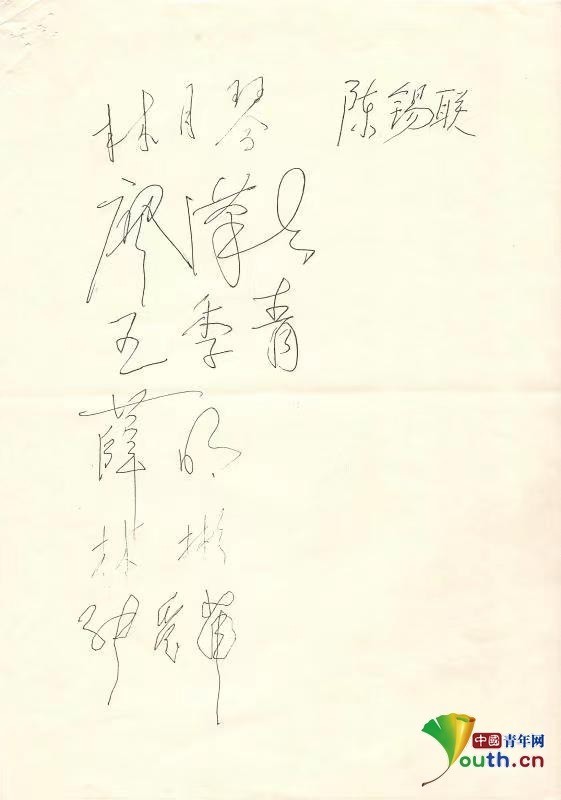 林月琴 陈锡联
廖汉生
王季青
薛明
林彬
中國青年网
Youth.cn